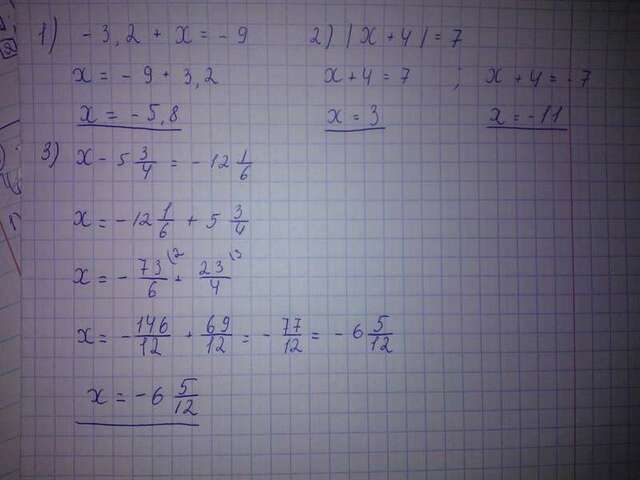 1) - 3,2 + x = - 9
x = - 9 + 3,2
x = - 5,8
2) |x + 4| = 7
x + 4 = 7 ; x + 4 = - 7
x = 3 x = - 11
3) x - 5 3/4 = - 12 1/6
x = - 12 1/6 + 5 3/4
x = - 73/6 \2 + 23/4 \3
x = - 146/12 + 69/12 = - 77/12 = - 6 5/12
x = - 6 5/12